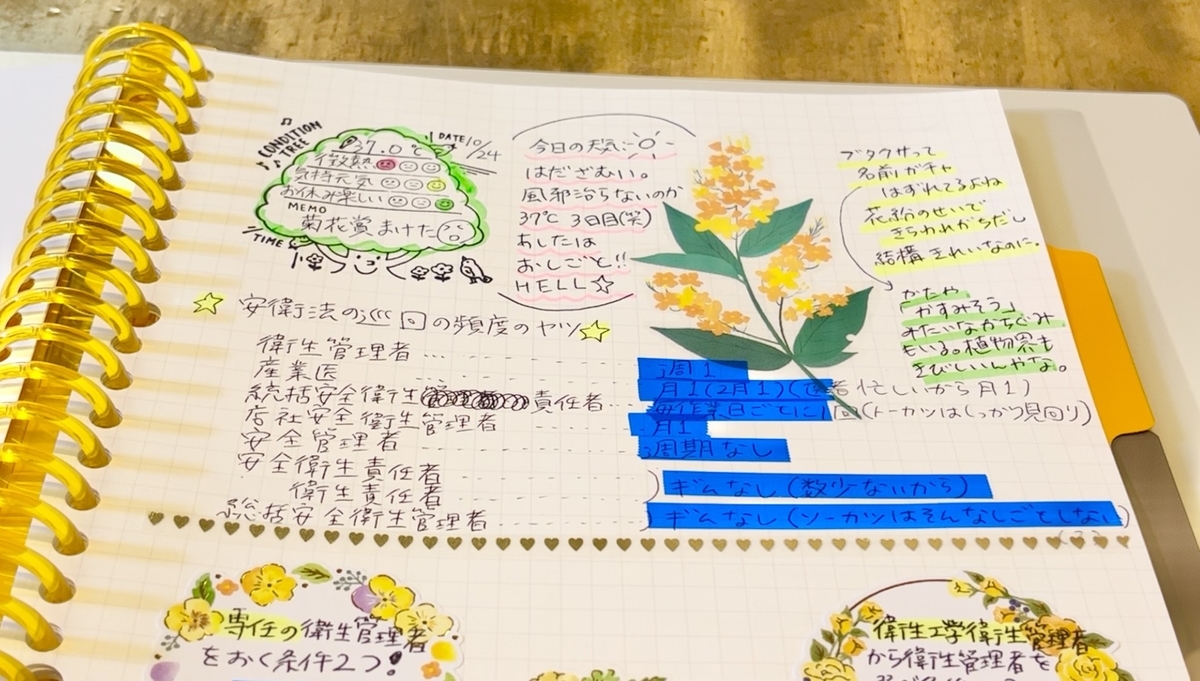 CONDITION TREE
DATE 10/24
37.0℃
微熱
気持元気
お休み楽しい
MEMO
菊花賞まけた
TIME
今日の天気:
はださむい。
風邪治らないのか
37℃ 3日目(笑)
あしたは
おしごと!!
HELL☆
ブタクサって
名前ガチャ
はずれてるよね
花粉のせいで
きらわれがちだし
結構きれいなのに。
かたや
「かすみそう」
みたいなかちぐみ
もいる。植物界も
きびしいんやな。
安衛法の巡回の頻度のヤツ
衛生管理者 … 週1
産業医 月1(2月1)( 者忙しいから月1)
統括安全衛生責任者 … 毎作業日ごとに1回(トーカツはしっかり見回り)
店社安全衛生管理者 月1
安全管理者 周期なし
安全衛生責任者
衛生責任者 ギムなし(数少ないから)
総括安全衛生管理者 ギムなし(ソーカツはそんなしごとしない)
専任の衛生管理者
をおく条件2つ!
衛生工学衛生管理者
から衛生管理者を